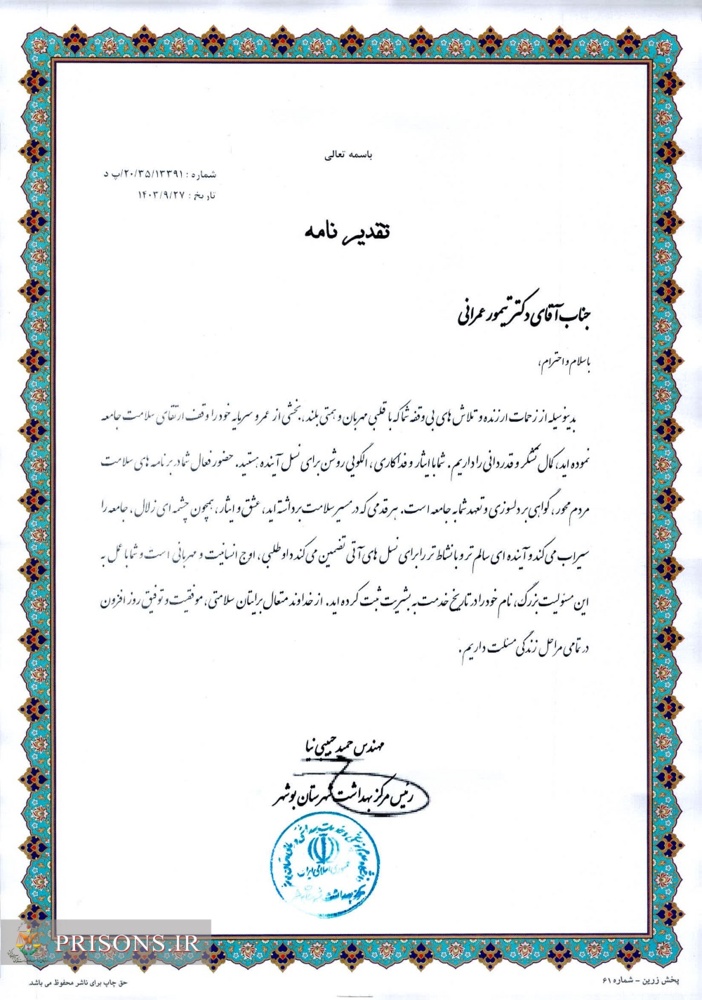 باسمه تعالی
شماره : ۲۰/۳۵/۱۳۳۹۱/پ د
تاریخ : ۱۴۰۳/۹/۲۷
تقدیر نامه
جناب آقای دکتر تیمور عمرانی
باسلام و احترام،
بدینوسیله از زحمات ارزنده و تلاش های بی وقفه شما که با قلبی مهربان و همتی بلند، بخشی از عمر و سرمایه خود را وقف ارتقای سلامت جامعه
نموده اید، کمال تشکر و قدردانی را داریم. شما با ایثار و فداکاری، الگویی روشن برای نسل آینده هستید. حضور فعال شما در برنامه های سلامت
مردم محور، گواهی بر دلسوزی و تعهد شما به جامعه است. هر قدمی که در مسیر سلامت برداشته اید، عشق و ایثار، همچون چشمه ای زلال، جامعه را
سیراب می کند و آینده ای سالم تر و با نشاط تر را برای نسل های آتی تضمین می کند داوطلبی، اوج انسانیت و مهربانی است و شما با عمل به
این مسئولیت بزرگ، نام خود را در تاریخ خدمت به بشریت ثبت کرده اید. از خداوند متعال برایتان سلامتی، موفقیت و توفیق روز افزون
در تمامی مراحل زندگی مسئلت داریم.
مهندس حمید حبیبی نیا
رئیس مرکز بهداشت شهرستان بوشهر
جمهوری اسلامی ایران
PRISONS.IR
پخش زرین - شماره ۶۱
حق چاپ برای ناشر محفوظ می باشد